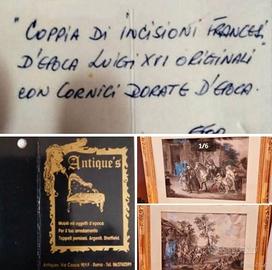 "COPPIA DI INCISIONI FRANCESI
D'EPOCA LUIGI XVI ORIGINALI"
CON CORNICI DORATE D'EPOCA.
Antique's
Mobili ed oggetti d'epoca
Per il tuo arredamento
Tappeti persiani, Argenti, Sheffield.
1/6